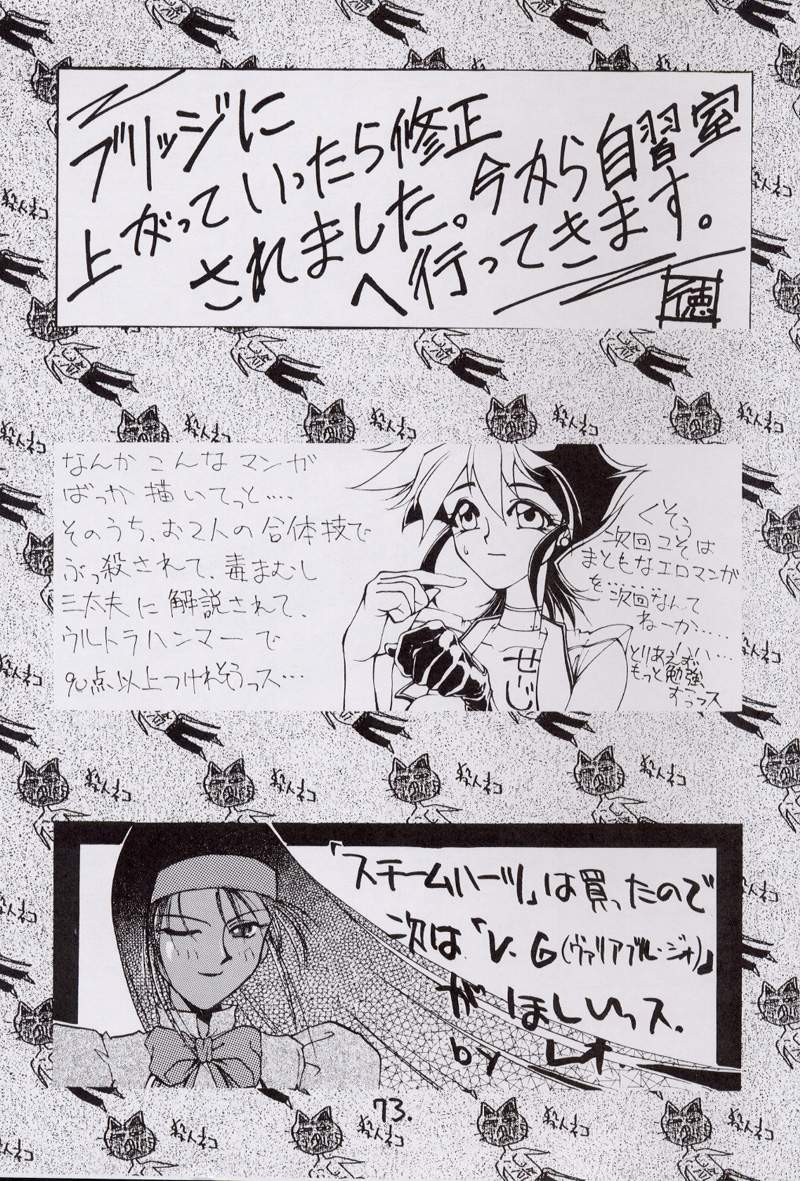 ブリッジに
上がっていったら修正
されました。今から自習室
へ行ってきます。
徳
なんかこんなマンガ
ばっか描いてっと‥‥
そのうち、お2人の合体技で
ぶっ殺されて、毒まむし
三太夫に解説されて、
ウルトラハンマーで
90点以上つけれそうっス…
くそう
次回こそは
まともなエロマンガ
を……次回なんて
ねーか‥‥
とりあえず
もっと勉強
せーじ
「スチームハーツ」は買ったので
次は「V.G(ヴァリアブル・ジオ)」
がほしいっス.
by レオ.
殺人ネコ
殺人ネコ
殺人ネコ
殺人ネコ
殺人ネコ
殺人ネコ
殺人ネコ
殺人ネコ
殺人ネコ
73.